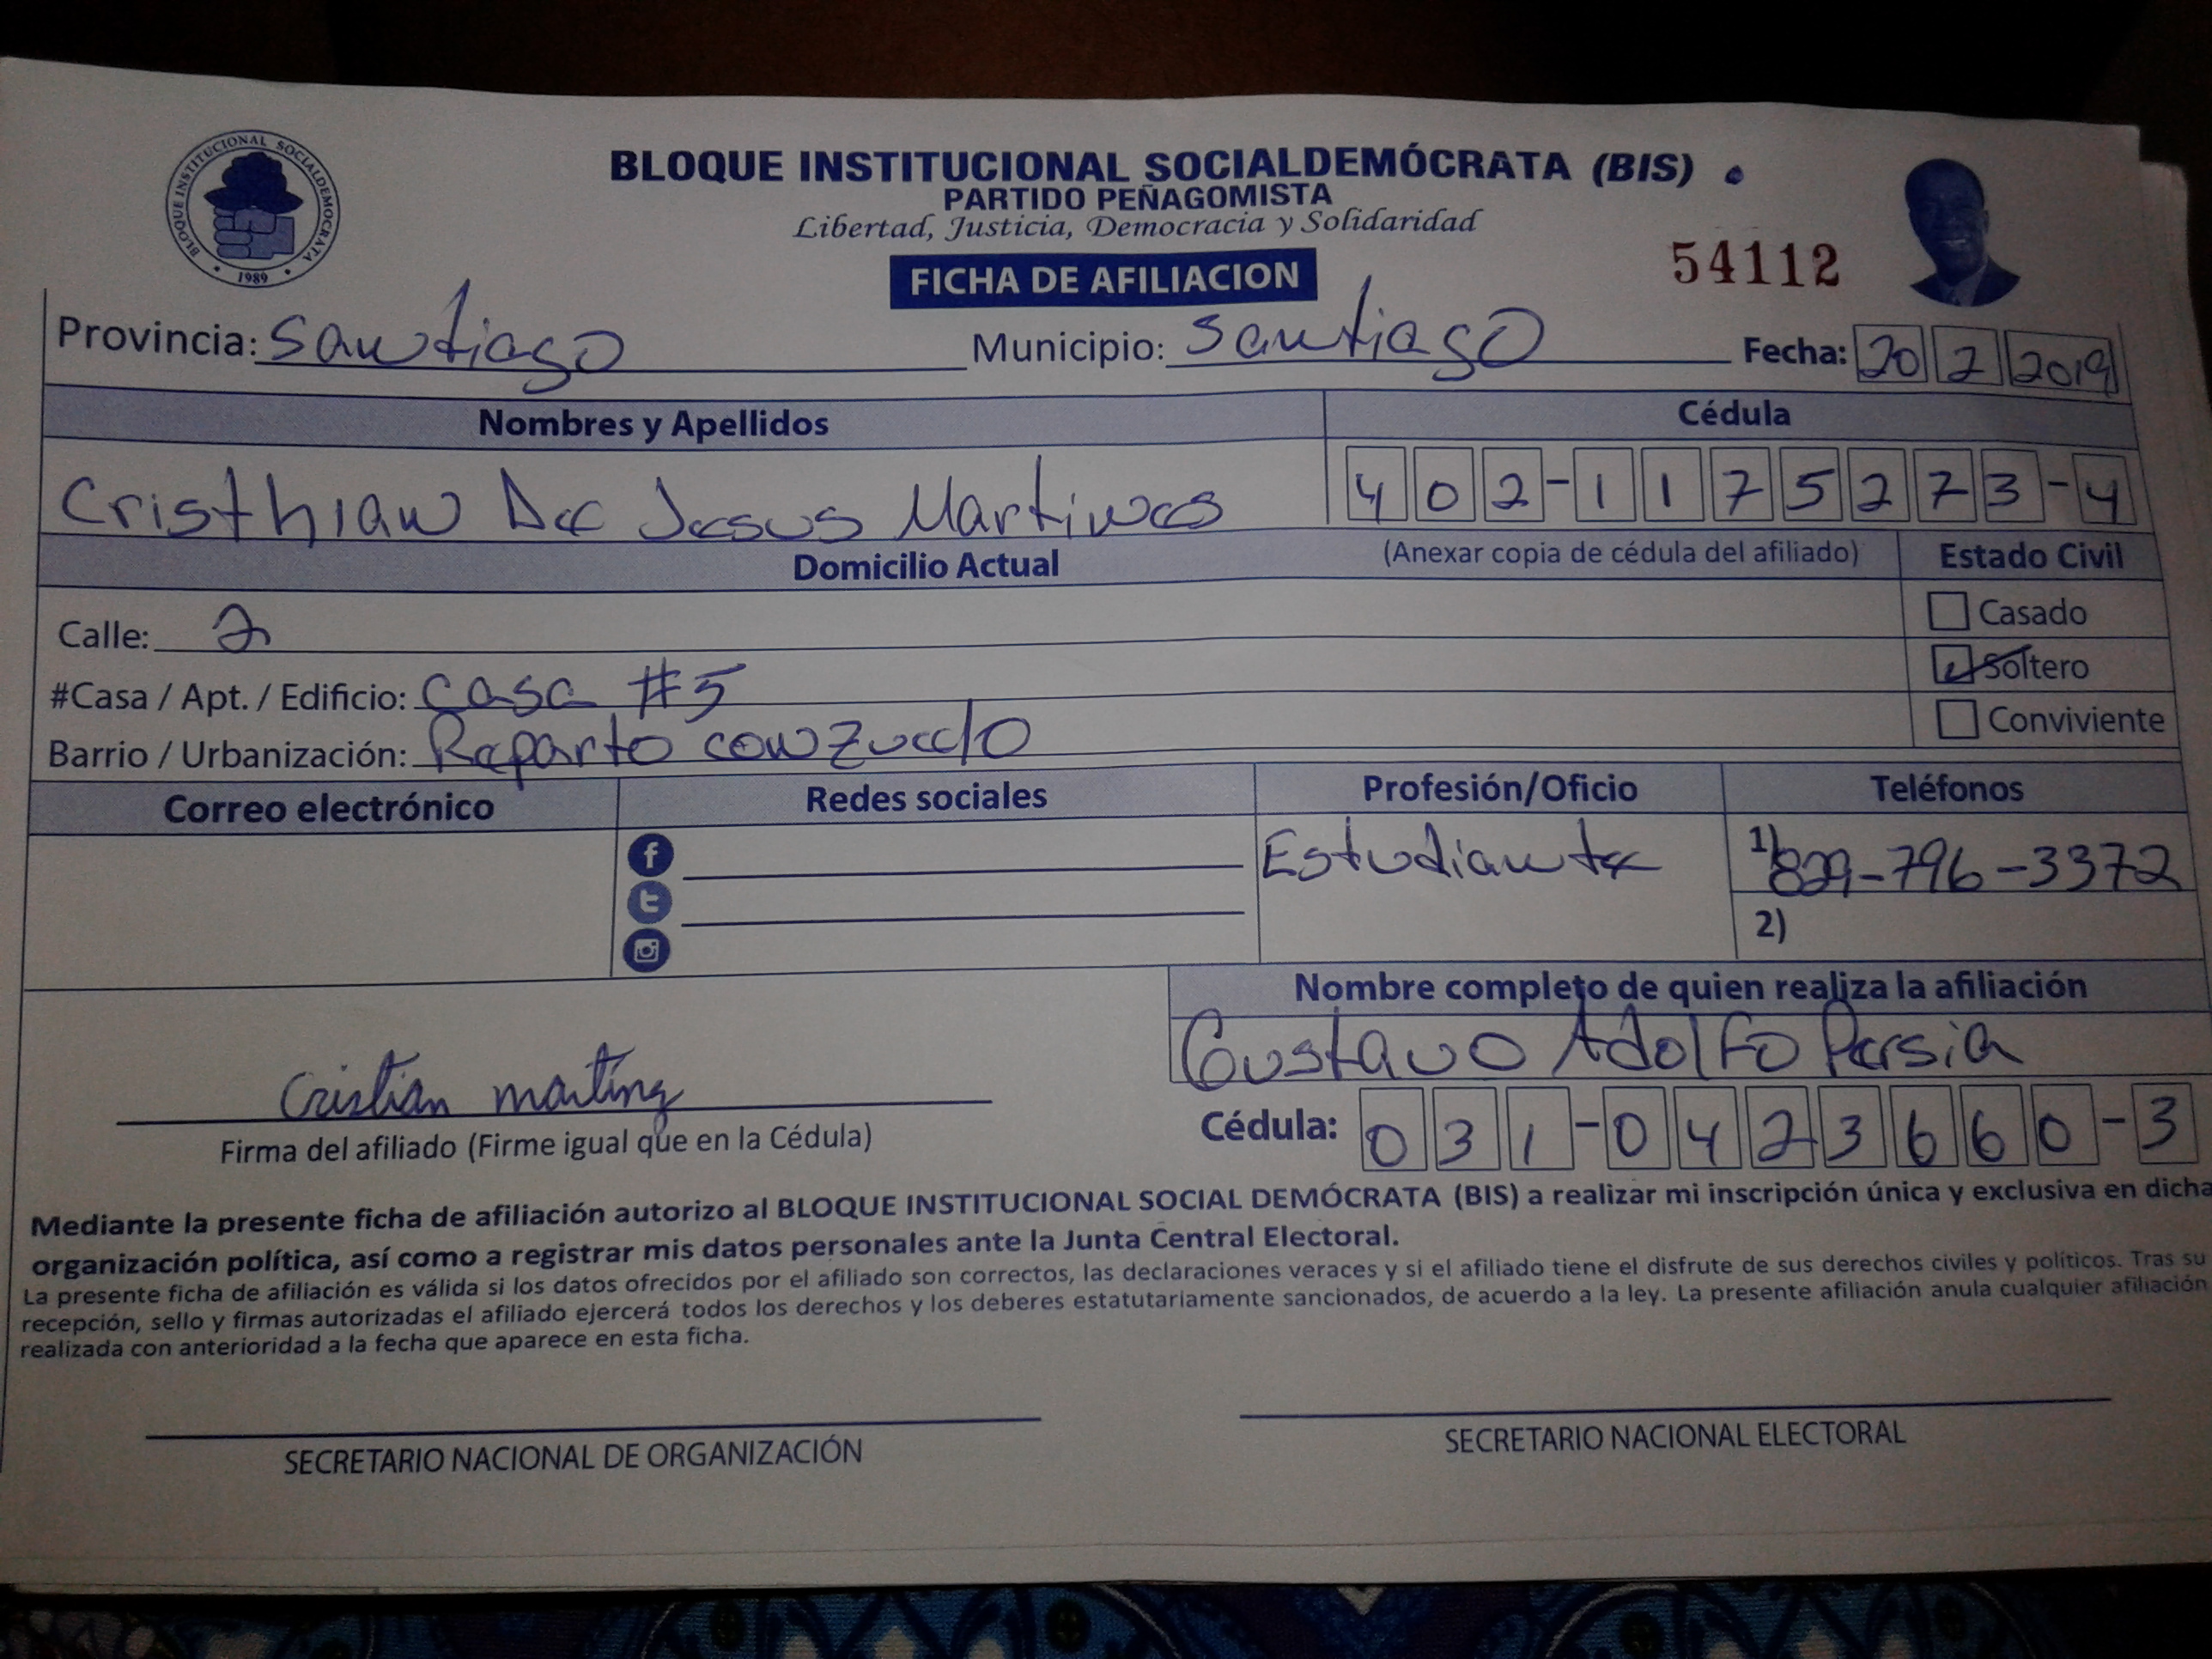 BLOQUE INSTITUCIONAL SOCIALDEMOCRATA
1989
BLOQUE INSTITUCIONAL SOCIALDEMÓCRATA (BIS)
PARTIDO PEÑAGOMISTA
Libertad, Justicia, Democracia y Solidaridad
FICHA DE AFILIACION
54112
Provincia: Santiago Municipio: Santiago Fecha: 20 2 2019
Nombres y Apellidos Cédula
Cristhian De Jesus Martines 402-1175273-4
Domicilio Actual (Anexar copia de cédula del afiliado) Estado Civil
Calle: 2 Casado
#Casa / Apt. / Edificio: Casa #5 Soltero
Barrio / Urbanización: Reparto Conzuelo Conviviente
Correo electrónico Redes sociales Profesión/Oficio Teléfonos
Estudiante 1) 829-796-3372
2)
Nombre completo de quien realiza la afiliación
Gustavo Adolfo Persia
Cristian Martinez
Cédula: 031-0423660-3
Firma del afiliado (Firme igual que en la Cédula)
Mediante la presente ficha de afiliación autorizo al BLOQUE INSTITUCIONAL SOCIAL DEMÓCRATA (BIS) a realizar mi inscripción única y exclusiva en dicha
organización política, así como a registrar mis datos personales ante la Junta Central Electoral.
La presente ficha de afiliación es válida si los datos ofrecidos por el afiliado son correctos, las declaraciones veraces y si el afiliado tiene el disfrute de sus derechos civiles y políticos. Tras su
recepción, sello y firmas autorizadas el afiliado ejercerá todos los derechos y los deberes estatutariamente sancionados, de acuerdo a la ley. La presente afiliación anula cualquier afiliación
realizada con anterioridad a la fecha que aparece en esta ficha.
SECRETARIO NACIONAL DE ORGANIZACIÓN SECRETARIO NACIONAL ELECTORAL